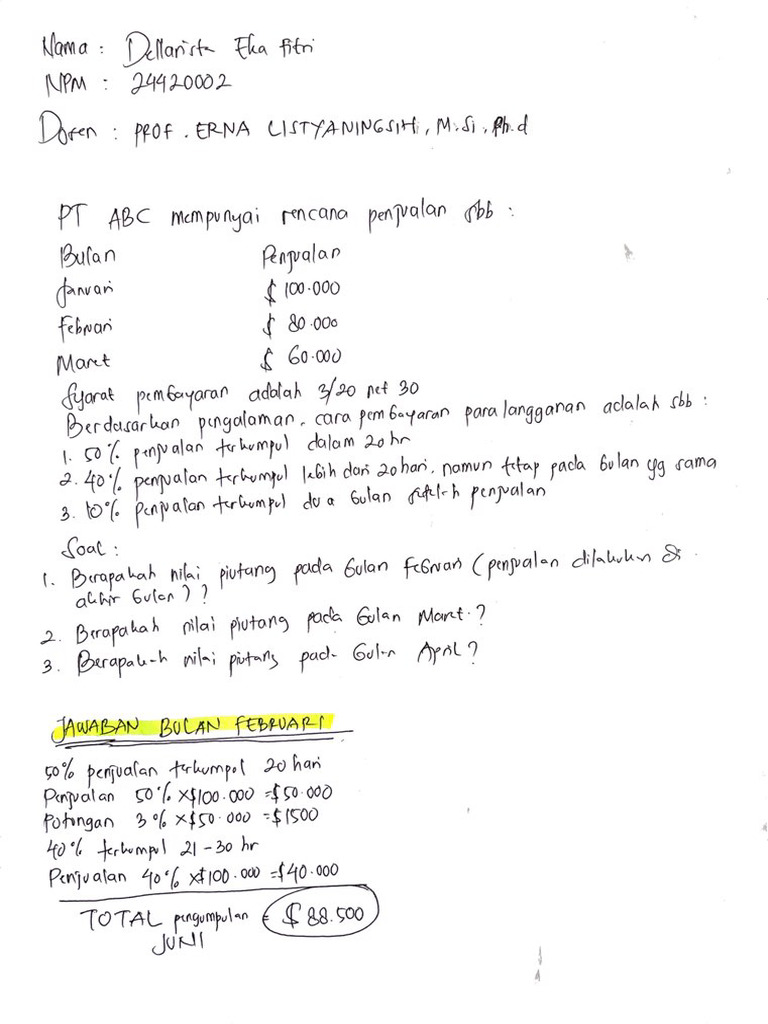 Nama : Dellarista Eka Fitri
NPM : 24420002
Dosen : PROF. ERNA LISTYANINGSIH, M.Si, Ph.d
PT ABC mempunyai rencana penjualan sbb :
Bulan Penjualan
Januari $ 100.000
Februari $ 80.000
Maret $ 60.000
Syarat pembayaran adalah 3/20 net 30
Berdasarkan pengalaman, cara pembayaran para langganan adalah sbb :
1. 50% penjualan terkumpul dalam 20 hr
2. 40% penjualan terkumpul lebih dari 20 hari, namun tetap pada bulan yg sama
3. 10% penjualan terkumpul dua bulan setelah penjualan
Soal :
1. Berapakah nilai piutang pada bulan Februari (penjualan dilakukan di
akhir bulan) ?
2. Berapakah nilai piutang pada bulan Maret ?
3. Berapakah nilai piutang pada bulan April ?
JAWABAN BULAN FEBRUARI
50% penjualan terkumpul 20 hari
Penjualan 50% x $100.000 = $50.000
Potongan 3% x $50.000 = $1500
40% terkumpul 21 - 30 hr
Penjualan 40% x $100.000 = $40.000
TOTAL pengumpulan = $ 88.500
JUNI